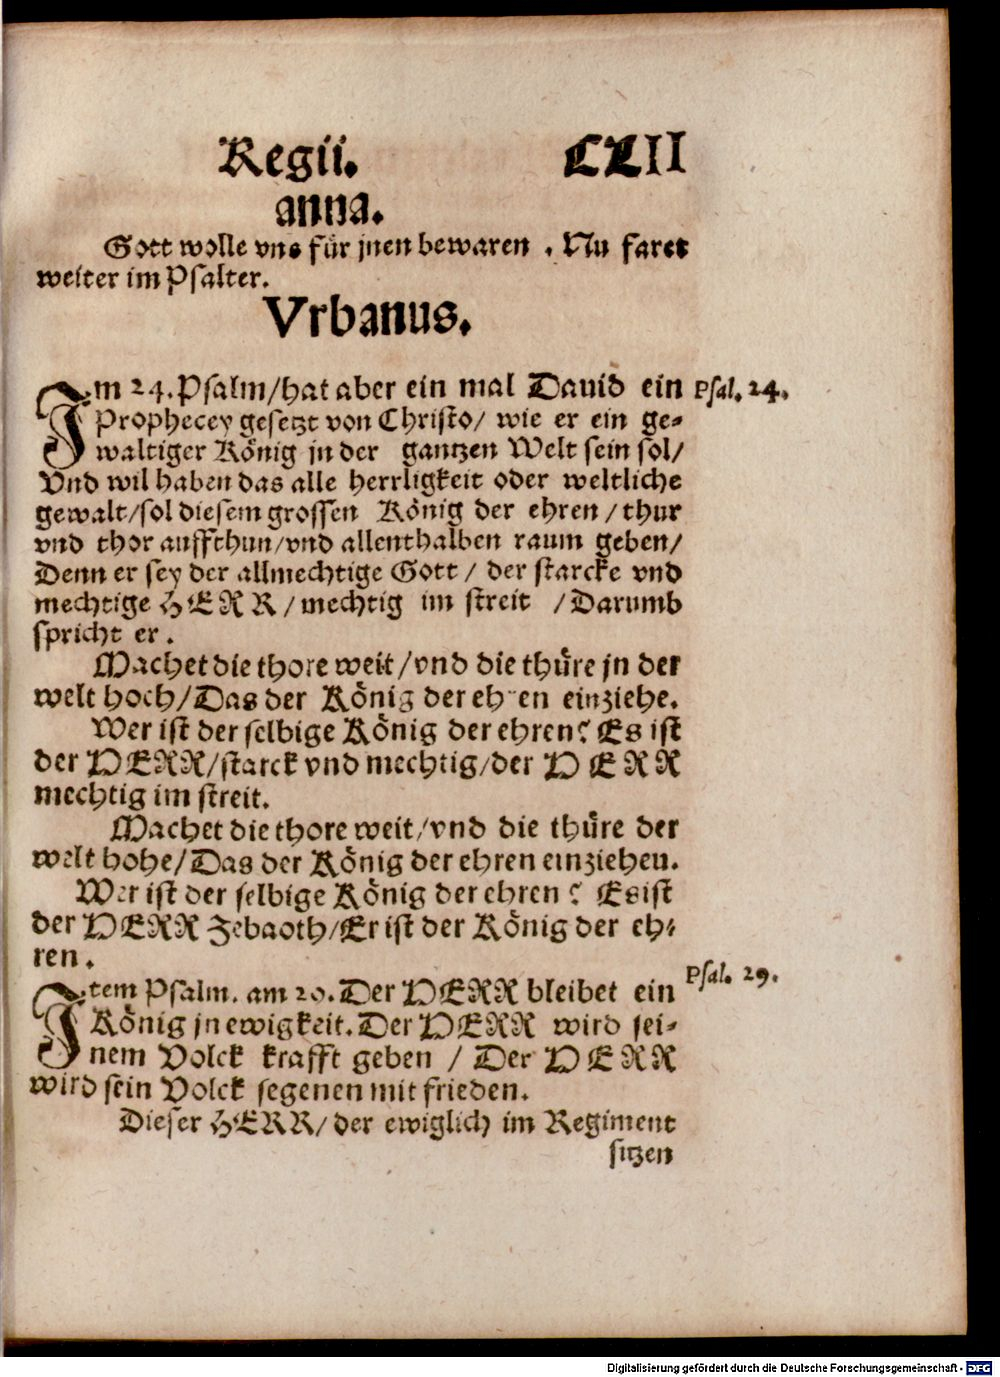 Regii. CLII
anna.
Gott wolle vns für jnen bewaren . Nu faret
weiter im Psalter.
Vrbanus.
Im 24. Psalm/hat aber ein mal Dauid ein Psal. 24.
Prophecey gesetzt von Christo/ wie er ein ge-
waltiger König jn der gantzen Welt sein sol/
Vnd wil haben das alle herrligkeit oder weltliche
gewalt/sol diesem grossen König der ehren/thur
vnd thor auffthun/vnd allenthalben raum geben/
Denn er sey der allmechtige Gott/ der starcke vnd
mechtige HERR/mechtig im streit /Darumb
spricht er.
Machet die thore weit/vnd die thüre jn der
welt hoch/Das der König der ehren einziehe.
Wer ist der selbige König der ehren? Es ist
der HERR/starck vnd mechtig/der HERR
mechtig im streit.
Machet die thore weit/vnd die thüre der
welt hohe/Das der König der ehren einziehen.
Wer ist der selbige König der ehren? Es ist
der HERR Zebaoth/Er ist der König der eh-
ren.
Item Psalm. am 29. Der HERR bleibet ein Psal. 29.
König jn ewigkeit. Der HERR wird sei-
nem Volck krafft geben / Der HERR
wird sein Volck segenen mit frieden.
Dieser HERR/ der ewiglich im Regiment
sitzen
Digitalisierung gefördert durch die Deutsche Forschungsgemeinschaft - DFG